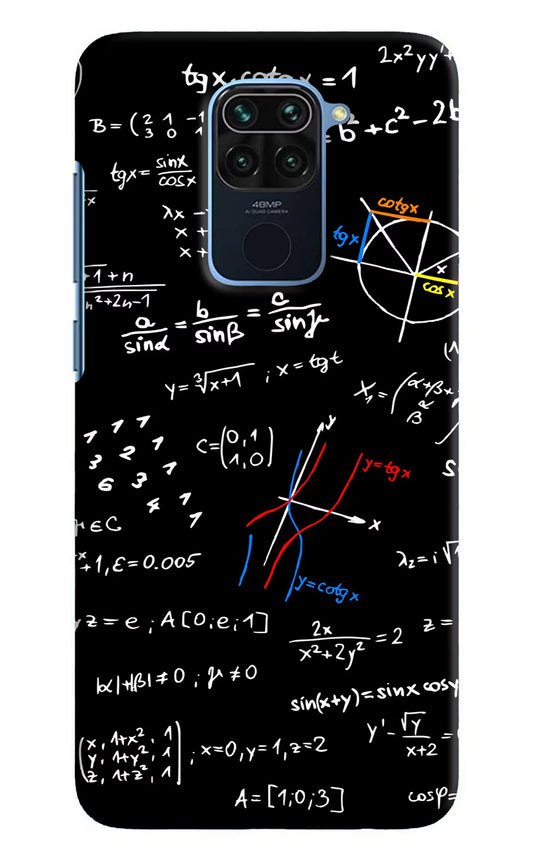 2x²yy'+
tgx·cotgx=1
B=(2 1 -1
3 0 1
=b²+c²-2b
tgx=sinx/cosx
48MP
AI QUAD CAMERA
cotgx
tgx
x
cosx
λx -
x +
x +
+1+n
n²+2n-1
a/sinα = b/sinβ = c/sinγ
y=³√x+1 ; x=tgt
X₁=(α+β+
α
β
1 1 1
3 2 1
6 3 1
4 1
1
C=(0,1
1,0)
y
y=tgx
S
x
∈C
x+1,ε=0.005
y=cotgx
λ₂=i√1
yz=e ; A[0;e;1]
2x/x²+2y²=2
z=
|α|+|β|≠0 ; γ≠0
sin(x+y)=sinx cosy
(x, 1+x², 1
y, 1+y², 1
z, 1+z², 1) ; x=0,y=1,z=2
y'-√y/x+2=
A=[1;0;3]
cosφ=